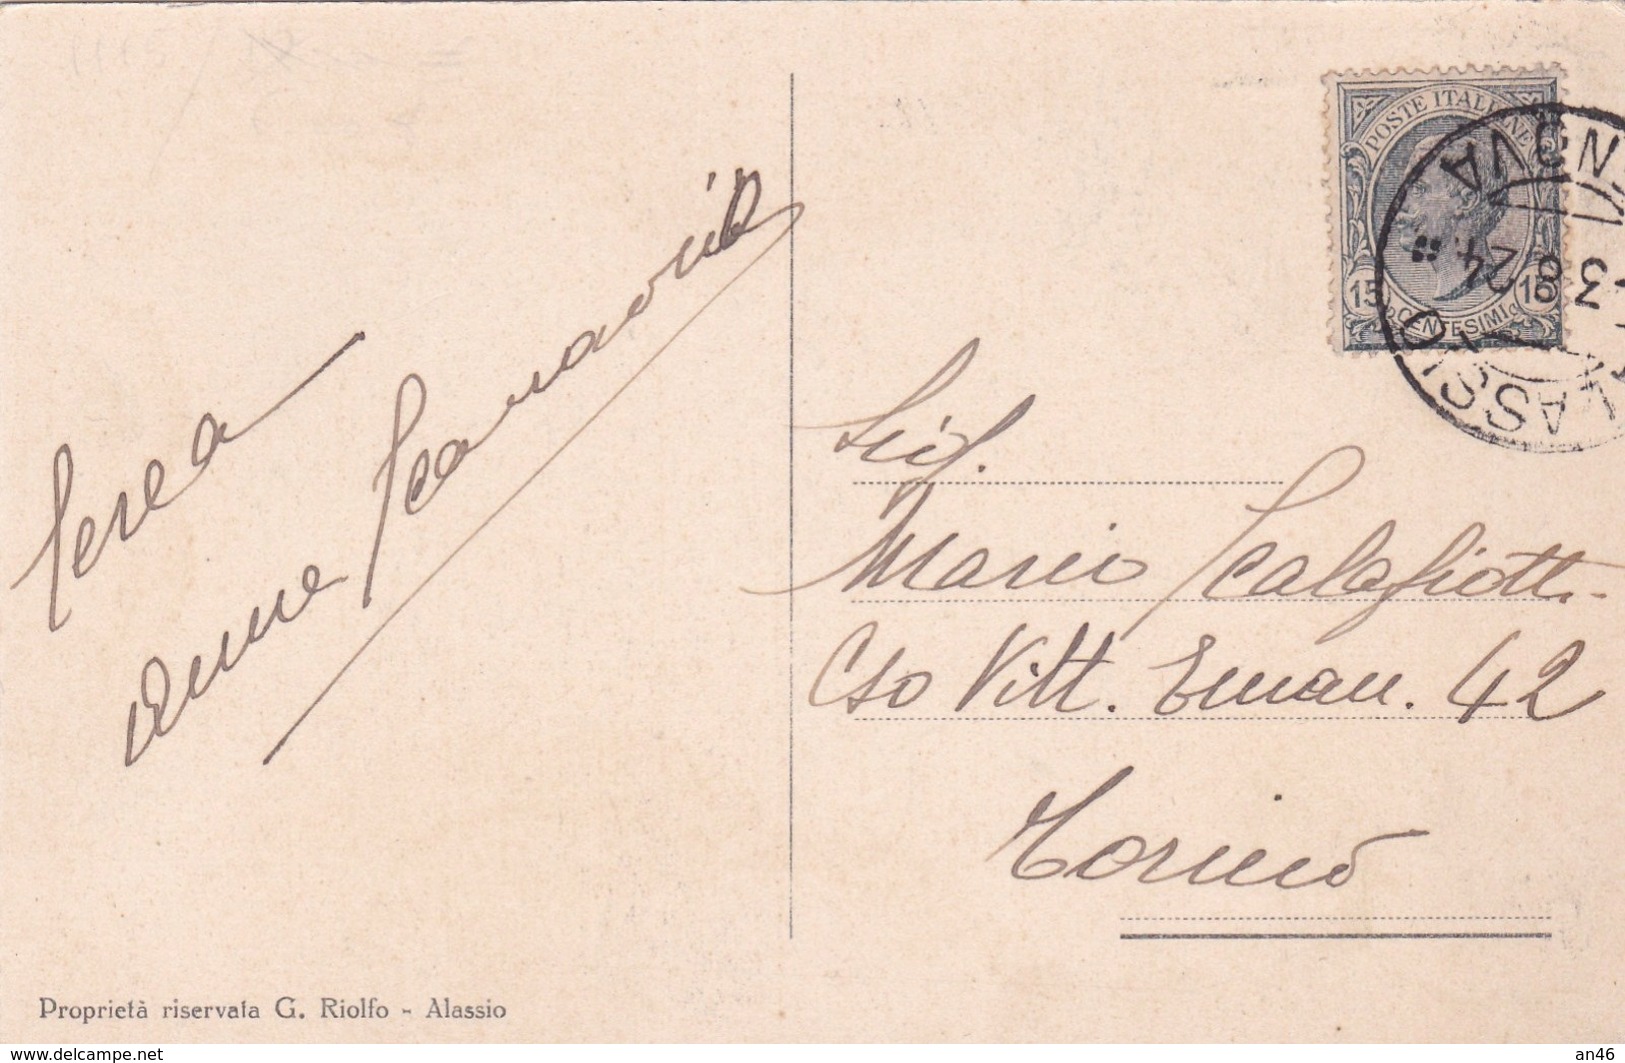 POSTE ITALIANE
15 15
CENTESIMI
ALASSIO
GENOVA
3 8 24
Sig.
Mario Scalafiotti
Cso Vitt. Eman. 42
Torino
Proprietà riservata G. Riolfo - Alassio
www.delcampe.net
an46